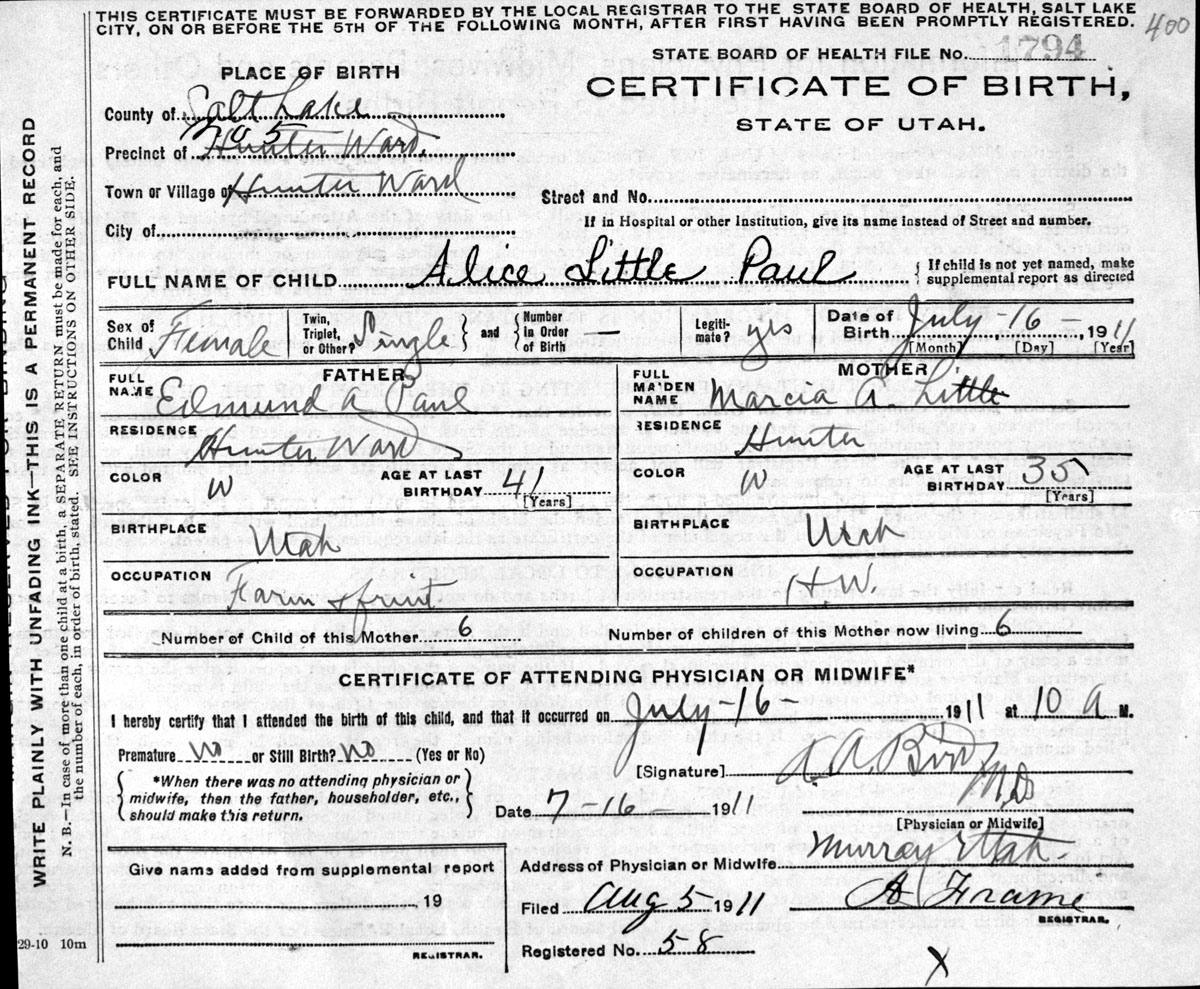 THIS CERTIFICATE MUST BE FORWARDED BY THE LOCAL REGISTRAR TO THE STATE BOARD OF HEALTH, SALT LAKE
CITY, ON OR BEFORE THE 5TH OF THE FOLLOWING MONTH, AFTER FIRST HAVING BEEN PROMPTLY REGISTERED.
400
STATE BOARD OF HEALTH FILE No. 1794
PLACE OF BIRTH
CERTIFICATE OF BIRTH,
STATE OF UTAH.
County of Salt Lake
No 5
Precinct of Hunter Ward
Town or Village of Hunter Ward
Street and No.
City of
If in Hospital or other Institution, give name instead of Street and number.
FULL NAME OF CHILD Alice Little Paul
If child is not yet named, make
supplemental report as directed
Sex of Child Female
Twin, Triplet, or Other? Single
and
Number in Order of Birth —
Legiti-mate? yes
Date of Birth July - 16 - 1911
[Month] [Day] [Year]
FATHER
MOTHER
FULL NAME Edmund A Paul
FULL MAIDEN NAME Marcia A. Little
RESIDENCE Hunter Ward
RESIDENCE Hunter
COLOR W
AGE AT LAST BIRTHDAY 41 [Years]
COLOR W
AGE AT LAST BIRTHDAY 35 [Years]
BIRTHPLACE Utah
BIRTHPLACE Utah
OCCUPATION Farm & fruit
OCCUPATION HW.
Number of Child of this Mother 6
Number of children of this Mother now living 6
CERTIFICATE OF ATTENDING PHYSICIAN OR MIDWIFE*
I hereby certify that I attended the birth of this child, and that it occurred on July - 16 - 1911 at 10 A M.
Premature no or Still Birth? no (Yes or No)
[Signature] A. A. Bird
M.D
*When there was no attending physician or
midwife, then the father, householder, etc.,
should make this return.
Date 7 - 16 - 1911
[Physician or Midwife]
Give name added from supplemental report
19
REGISTRAR.
Address of Physician or Midwife Murray Utah
Filed Aug 5 1911
Frame
REGISTRAR.
Registered No. 58
X
29-10 10m
WRITE PLAINLY WITH UNFADING INK—THIS IS A PERMANENT RECORD
N. B.—In case of more than one child at a birth, a SEPARATE RETURN must be made for each, and
the number of each, in order of birth, stated. SEE INSTRUCTIONS ON OTHER SIDE.